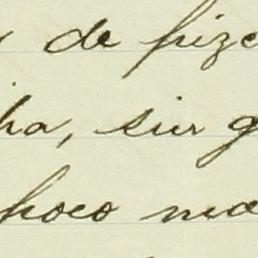 de fize
ha, sur g
poco ma